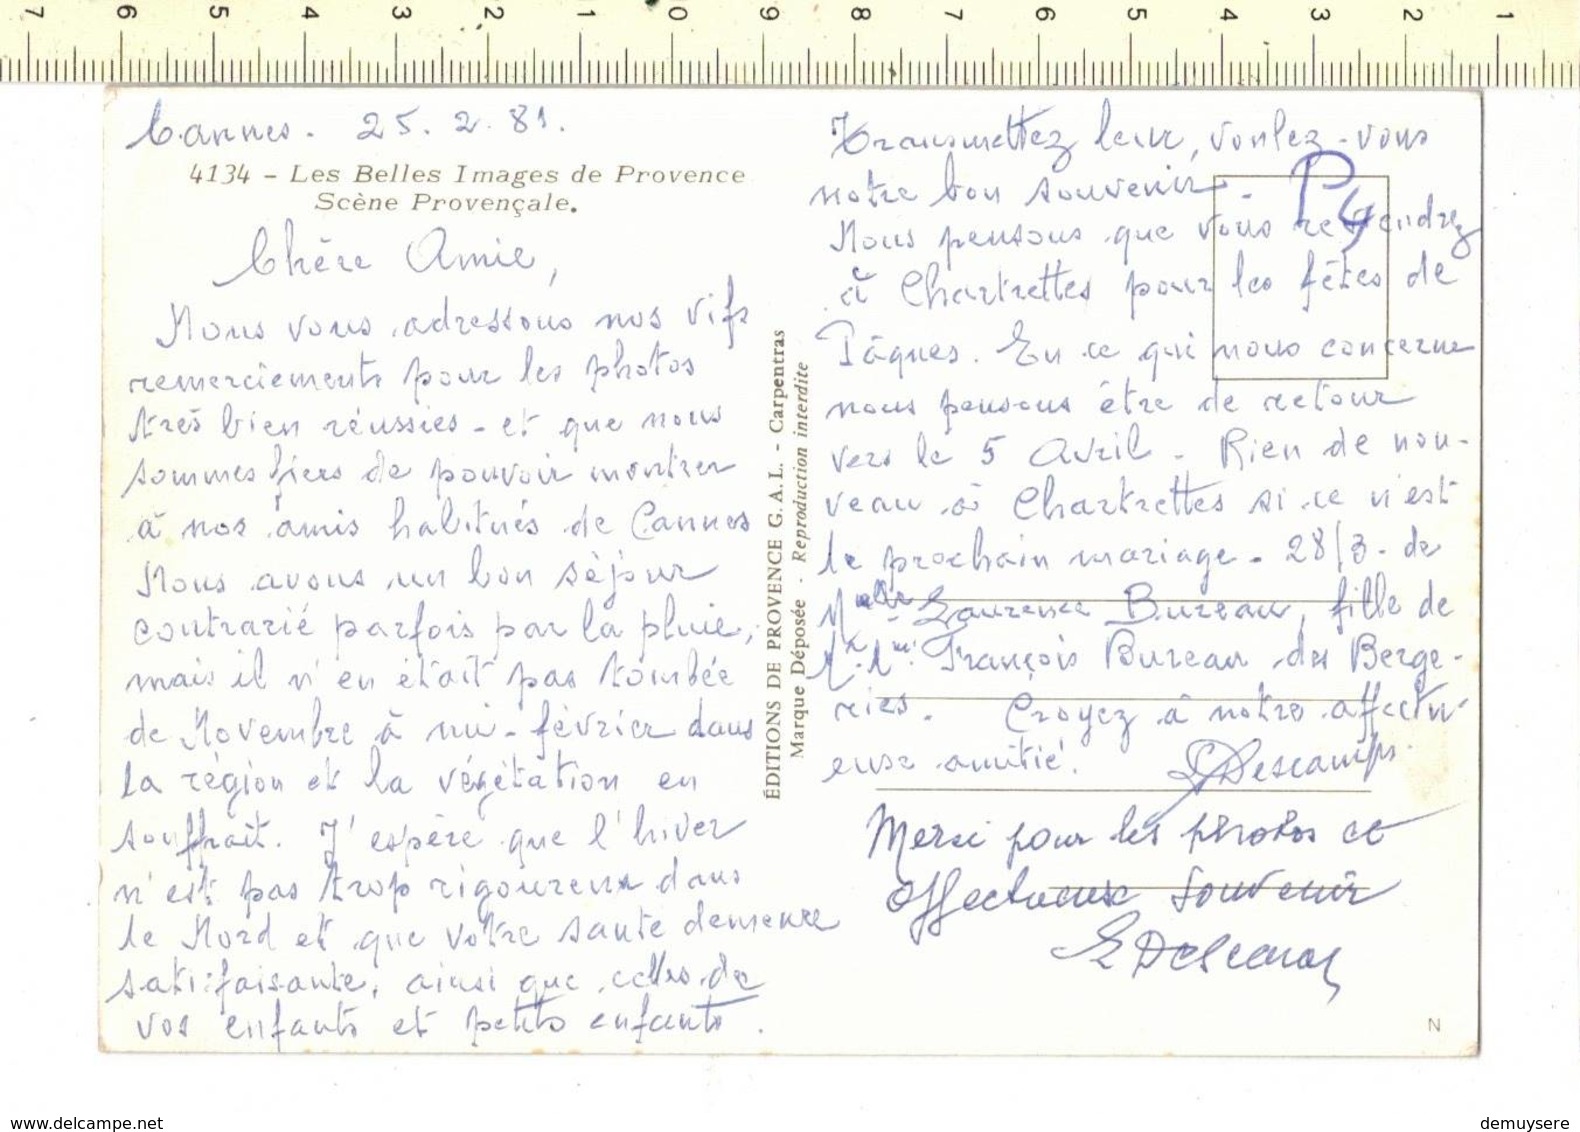 7 6 5 4 3 2 1 0 9 8 7 6 5 4 3 2 1
Cannes. 25.2.81.
4134 - Les Belles Images de Provence
Scène Provençale.
Chère Amie,
Nous vous adressons nos vifs
remerciements pour les photos
très bien réussies - et que nous
sommes fiers de pouvoir montrer
à nos amis habitués de Cannes
Nous avons un bon séjour
contrarié parfois par la pluie,
mais il n'en était pas tombée
de Novembre à mi-février dans
la région et la végétation en
souffrait. J'espère que l'hiver
n'est pas trop rigoureux dans
le Nord et que votre santé demeure
satisfaisante, ainsi que celles de
vos enfants et petits enfants.
ÉDITIONS DE PROVENCE G.A.L. - Carpentras
Marque Déposée - Reproduction interdite
Transmettez leur, voulez-vous
notre bon souvenir.
Nous pensons que vous reviendrez
à Chartrettes pour les fêtes de
Pâques. En ce qui nous concerne
nous pensons être de retour
vers le 5 Avril - Rien de nou-
veau à Chartrettes si ce n'est
le prochain mariage - 28/3 - de
Melle Laurence Bureau, fille de
M. Mme François Bureau des Berge-
ries. Croyez à notre affectu-
euse amitié. Descamps.
Merci pour les photos et
affectueux souvenir
Descamps
N
www.delcampe.net
demuysere